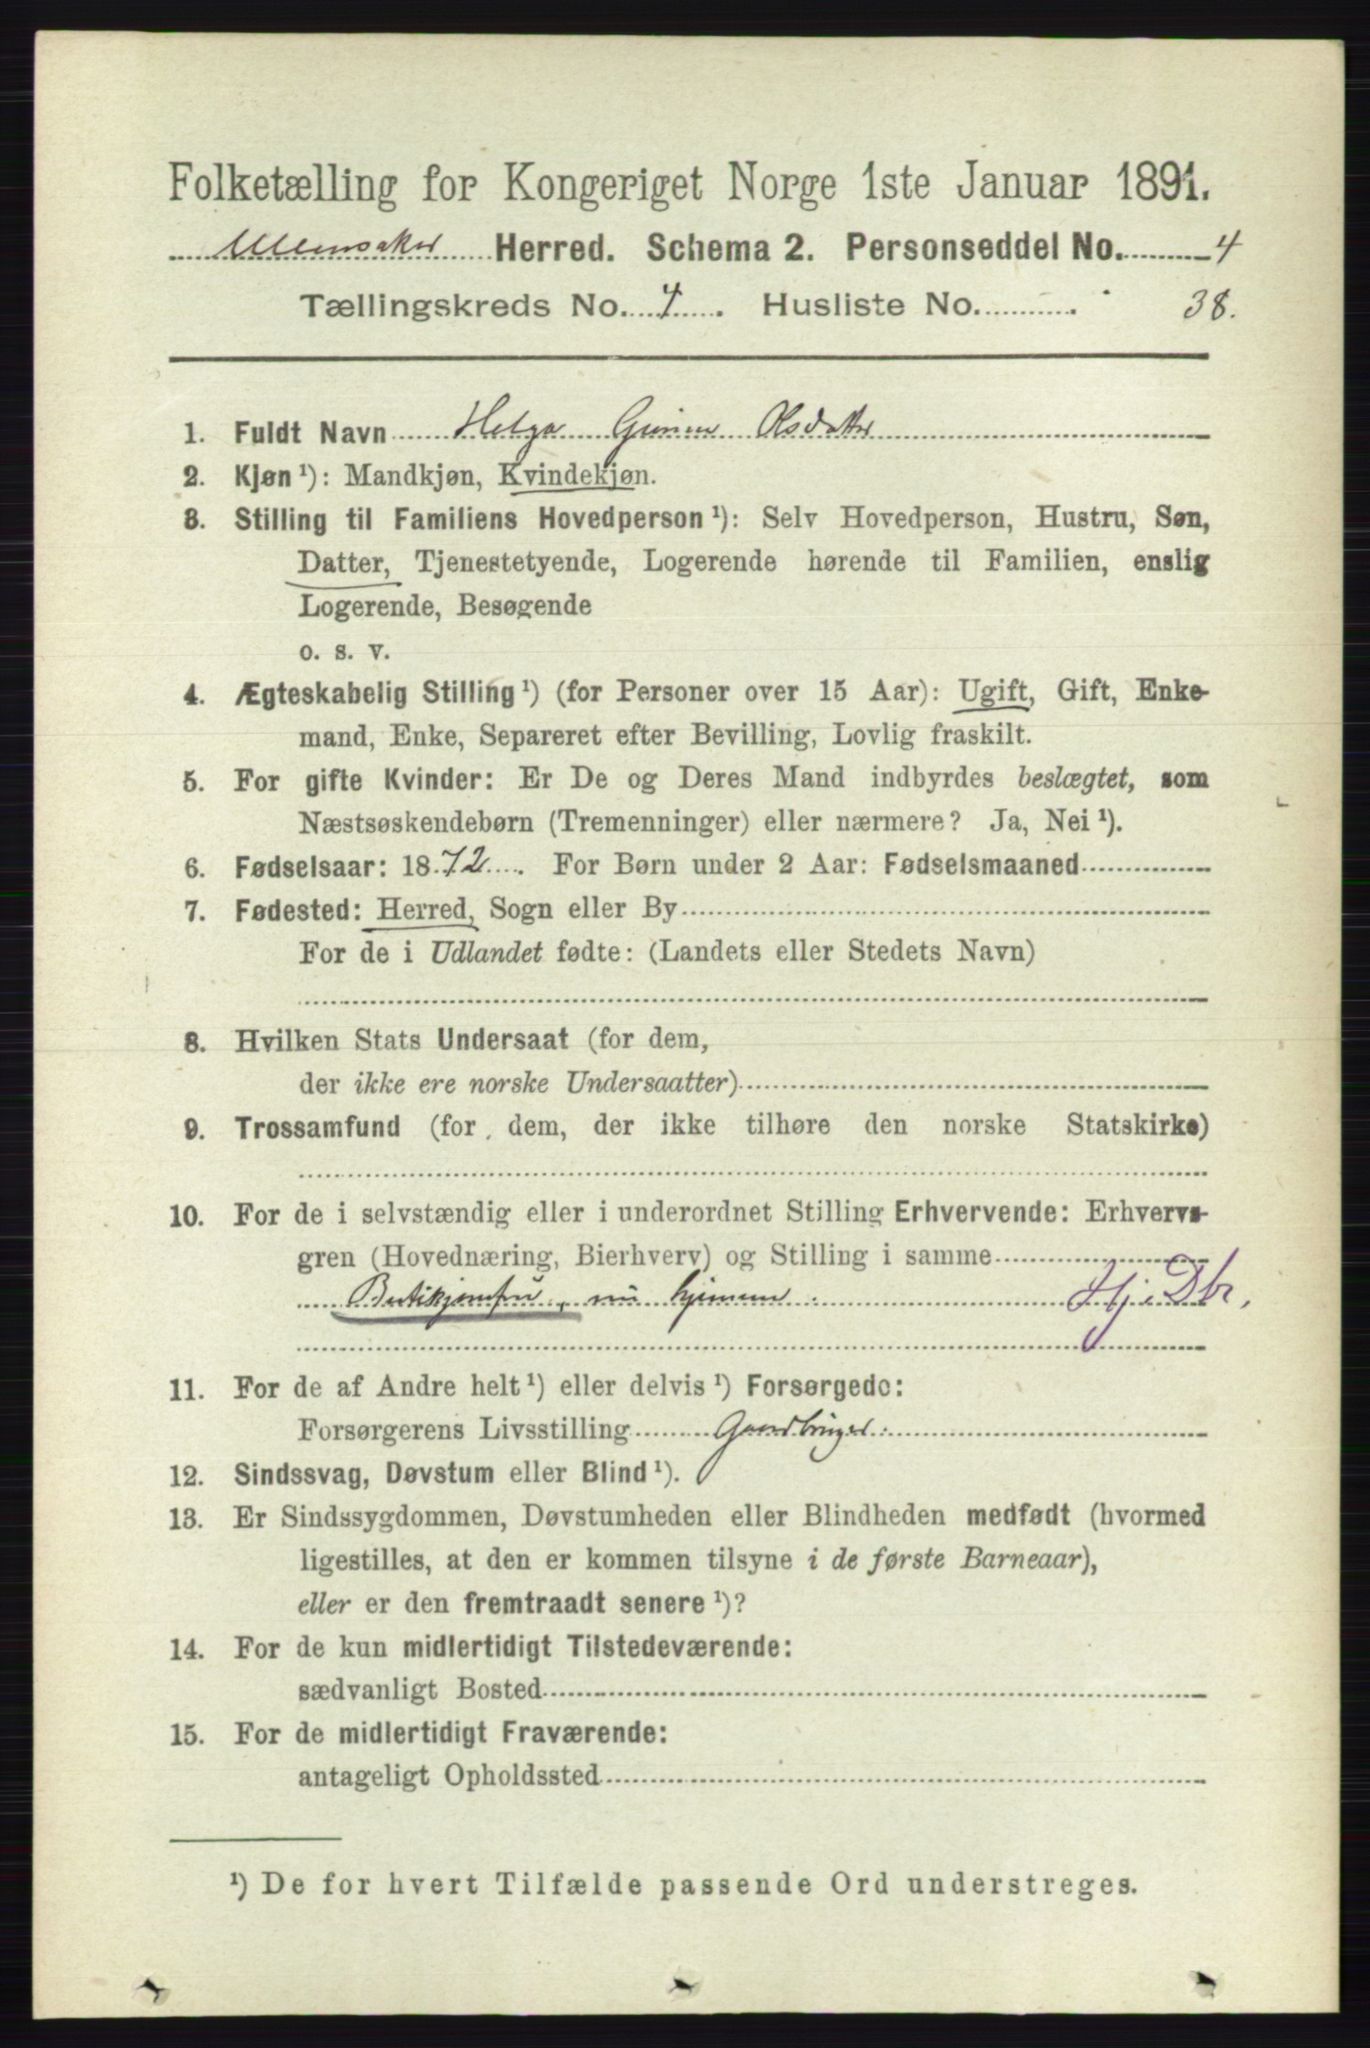 Folketælling for Kongeriget Norge 1ste Januar 1891.
Ullensaker Herred. Schema 2. Personseddel No. 4
Tællingskreds No. 4. Husliste No. 38.
1. Fuldt Navn Helga Olsdatter
2. Kjøn ¹): Mandkjøn, Kvindekjøn.
3. Stilling til Familiens Hovedperson ¹): Selv Hovedperson, Hustru, Søn,
Datter, Tjenestetyende, Logerende hørende til Familien, enslig
Logerende, Besøgende
o. s. v.
4. Ægteskabelig Stilling ¹) (for Personer over 15 Aar): Ugift, Gift, Enke-
mand, Enke, Separeret efter Bevilling, Lovlig fraskilt.
5. For gifte Kvinder: Er De og Deres Mand indbyrdes beslægtet, som
Næstsøskendebørn (Tremenninger) eller nærmere? Ja, Nei ¹).
6. Fødselsaar: 1872. For Børn under 2 Aar: Fødselsmaaned
7. Fødested: Herred, Sogn eller By
For de i Udlandet fødte: (Landets eller Stedets Navn)
8. Hvilken Stats Undersaat (for dem,
der ikke ere norske Undersaatter)
9. Trossamfund (for dem, der ikke tilhøre den norske Statskirke)
10. For de i selvstændig eller i underordnet Stilling Erhvervende: Erhvervs-
gren (Hovednæring, Bierhverv) og Stilling i samme
Butikjomfru, nu hjemme. Hj. Dtr.
11. For de af Andre helt ¹) eller delvis ¹) Forsørgede:
Forsørgerens Livsstilling Gaardbruger.
12. Sindssvag, Døvstum eller Blind ¹).
13. Er Sindssygdommen, Døvstumheden eller Blindheden medfødt (hvormed
ligestilles, at den er kommen tilsyne i de første Barneaar),
eller er den fremtraadt senere ¹)?
14. For de kun midlertidigt Tilstedeværende:
sædvanligt Bosted
15. For de midlertidigt Fraværende:
antageligt Opholdssted
¹) De for hvert Tilfælde passende Ord understreges.